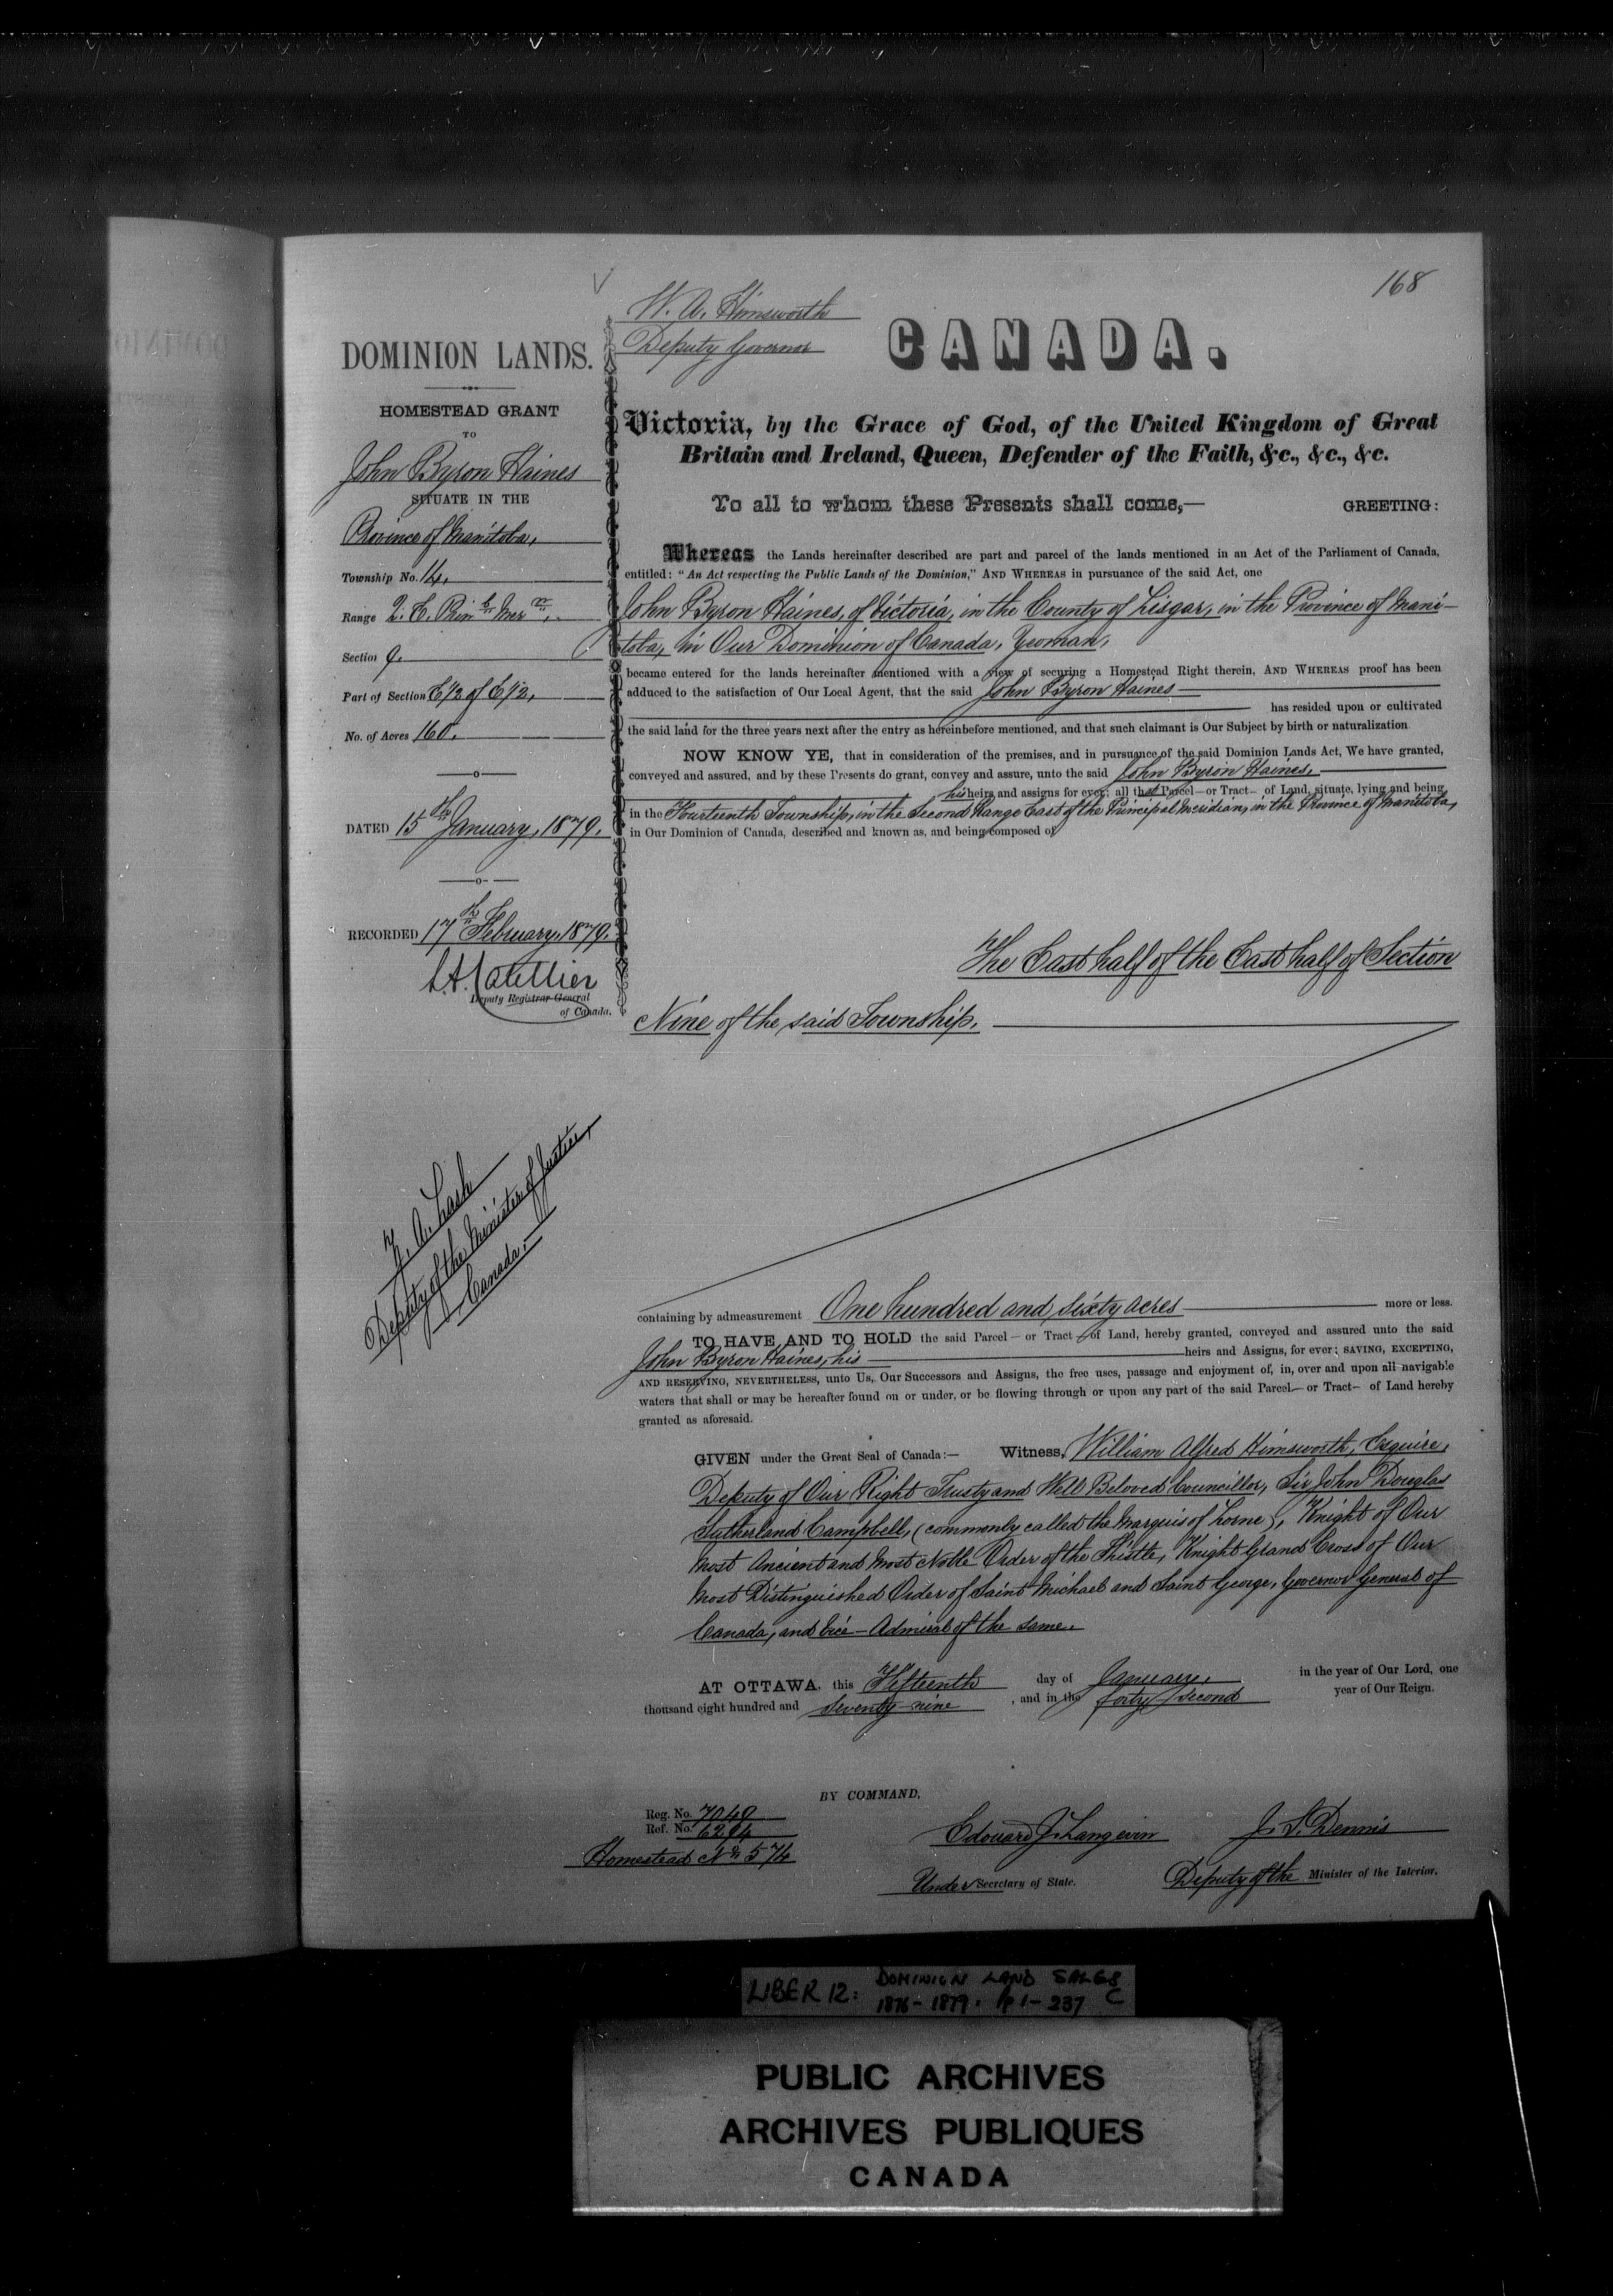 168
W. A. Himsworth
Deputy Governor
CANADA.
DOMINION LANDS.
HOMESTEAD GRANT
TO
John Byron Haines
SITUATE IN THE
Province of Manitoba,
Township No. 14,
Range 2. E. Prin l Mer n,
Section 9.
Part of Section E 1/2 of E 1/2,
No. of Acres 160.
DATED 15th January, 1879.
RECORDED 17th February, 1879.
L.A. Catellier
Deputy Registrar General
of Canada.
Z. A. Lash
Deputy of the Minister of Justice,
Canada.
Victoria, by the Grace of God, of the United Kingdom of Great
Britain and Ireland, Queen, Defender of the Faith, &c., &c., &c.
To all to whom these Presents shall come,— GREETING:
Whereas the Lands hereinafter described are part and parcel of the lands mentioned in an Act of the Parliament of Canada,
entitled: "An Act respecting the Public Lands of the Dominion," AND WHEREAS in pursuance of the said Act, one
John Byron Haines, of Victoria, in the County of Lisgar, in the Province of Mani-
toba, in Our Dominion of Canada, Yeoman,
became entered for the lands hereinafter mentioned with a view of securing a Homestead Right therein, AND WHEREAS proof has been
adduced to the satisfaction of Our Local Agent, that the said John Byron Haines
has resided upon or cultivated
the said land for the three years next after the entry as hereinbefore mentioned, and that such claimant is Our Subject by birth or naturalization
NOW KNOW YE, that in consideration of the premises, and in pursuance of the said Dominion Lands Act, We have granted,
conveyed and assured, and by these Presents do grant, convey and assure, unto the said John Byron Haines,
his heirs and assigns for ever; all that Parcel—or Tract— of Land, situate, lying and being
in the Fourteenth Township, in the Second Range East of the Principal Meridian, in the Province of Manitoba,
in Our Dominion of Canada, described and known as, and being composed of
The East half of the East half of Section
Nine of the said Township.
containing by admeasurement One hundred and sixty acres more or less.
TO HAVE AND TO HOLD the said Parcel — or Tract — of Land, hereby granted, conveyed and assured unto the said
John Byron Haines, his heirs and Assigns, for ever; SAVING, EXCEPTING,
AND RESERVING, NEVERTHELESS, unto Us, Our Successors and Assigns, the free uses, passage and enjoyment of, in, over and upon all navigable
waters that shall or may be hereafter found on or under, or be flowing through or upon any part of the said Parcel— or Tract— of Land hereby
granted as aforesaid.
GIVEN under the Great Seal of Canada:— Witness, William Alfred Himsworth, Esquire,
Deputy of Our Right Trusty and Well Beloved Councillor, Sir John Douglas
Sutherland Campbell, (commonly called the Marquis of Lorne), Knight of Our
Most Ancient and Most Noble Order of the Thistle, Knight Grand Cross of Our
Most Distinguished Order of Saint Michael and Saint George, Governor General of
Canada, and Vice-Admiral of the same.
AT OTTAWA, this Fifteenth day of January, in the year of Our Lord, one
thousand eight hundred and seventy-nine, and in the forty second year of Our Reign.
BY COMMAND,
Reg. No. 7049
Ref. No. 6294
Homestead No 574
Edouard J. Langevin
Under Secretary of State.
J. S. Dennis
Deputy of the Minister of the Interior.
LIBER 12: DOMINION LAND SALES
1876-1879. p 1-237 C
PUBLIC ARCHIVES
ARCHIVES PUBLIQUES
CANADA